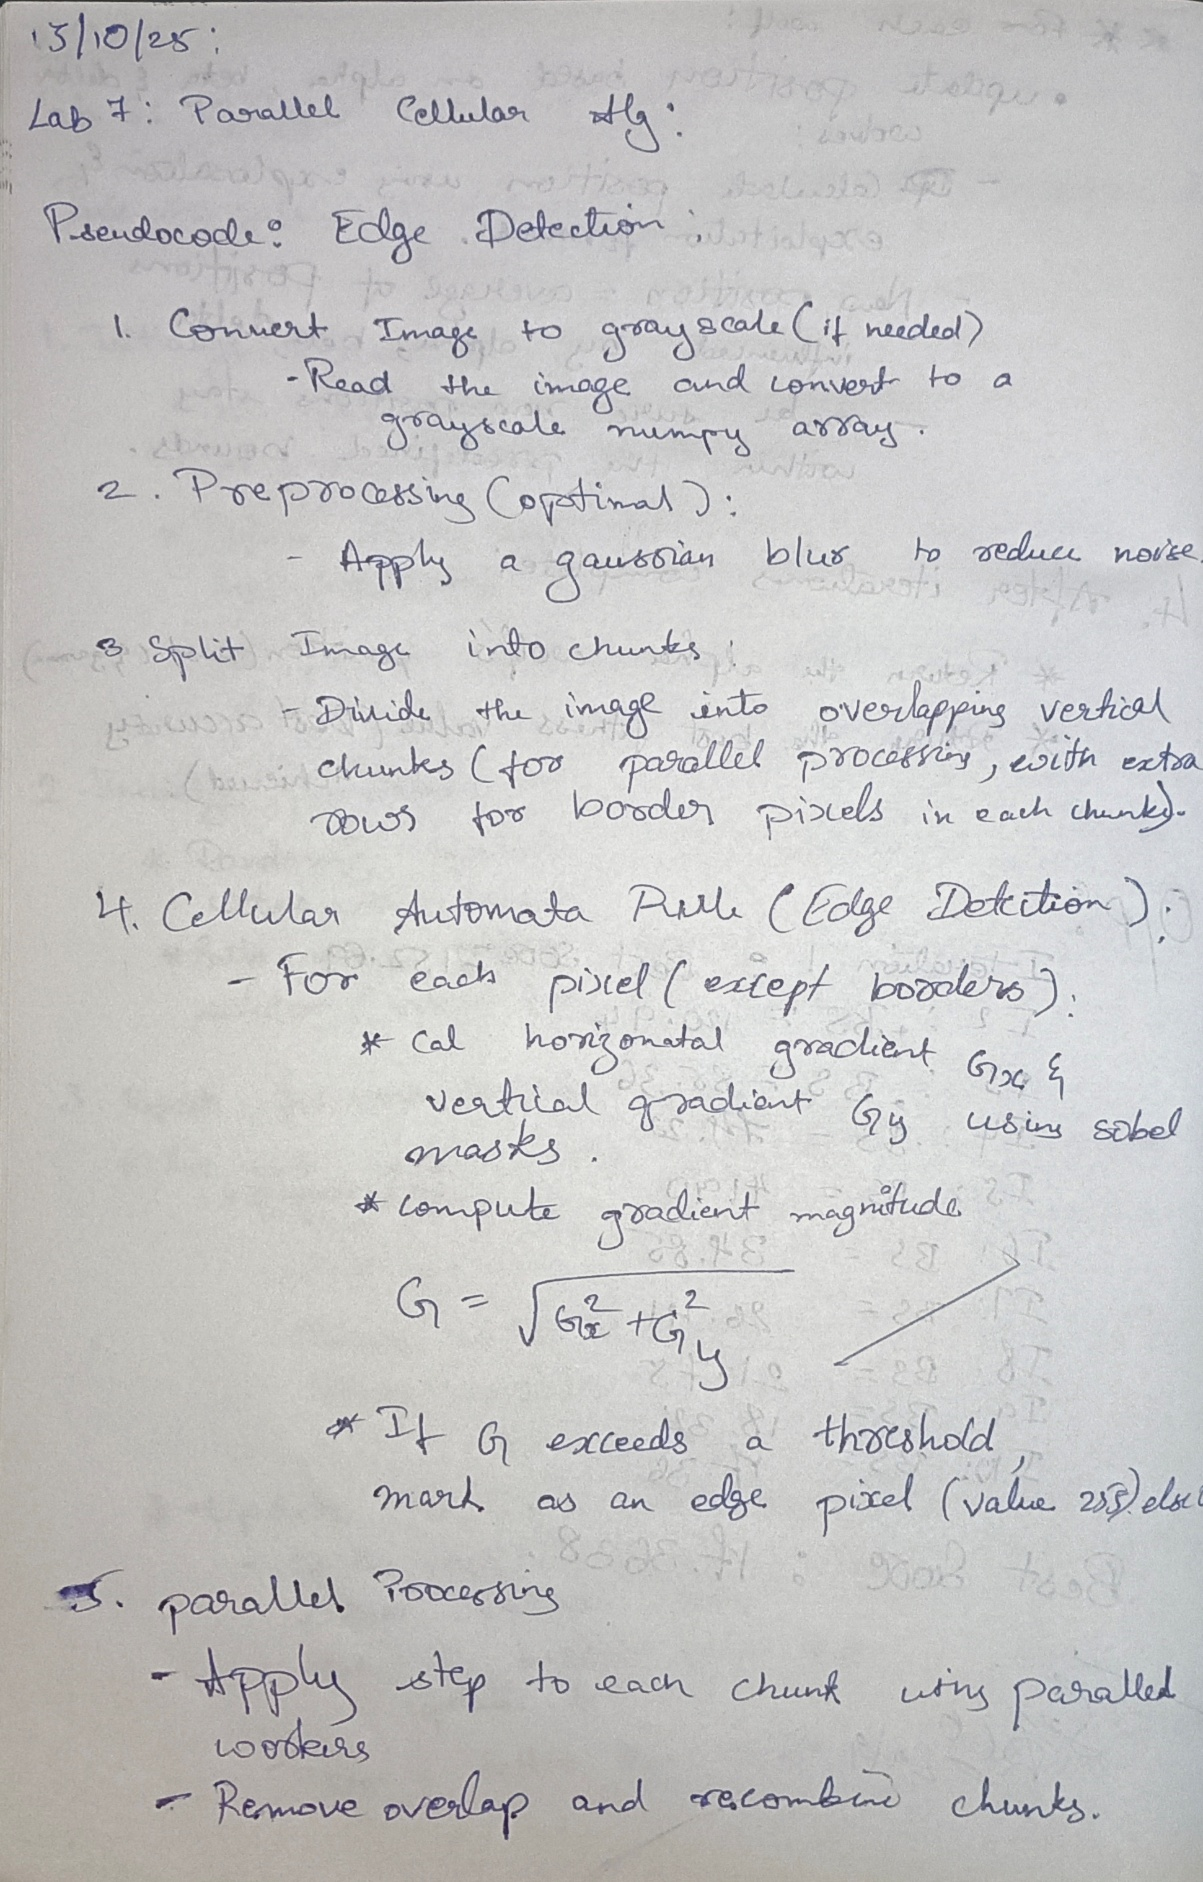 13/10/25:
Lab 7: Parallel Cellular Alg:
Pseudocode: Edge Detection:
1. Convert Image to grayscale (if needed)
- Read the image and convert to a
grayscale numpy array.
2. Preprocessing (optinal):
- Apply a gaussian blur to reduce noise.
3 Split Image into chunks:
- Divide the image into overlapping vertical
chunks (for parallel processing, with extra
rows for border pixels in each chunk).
4. Cellular Automata Rule (Edge Detcition):
- For each pixel (except borders):
* Cal horizonatal gradient Gx &
vertical gradient Gy using sobel
masks.
* compute gradient magnitude
G = √(Gx² + Gy²)
* If G exceeds a threshold,
mark as an edge pixel (value 255) else
5. parallel Processing
- Apply step to each chunk using parallel
workers
- Remove overlap and recombine chunks.